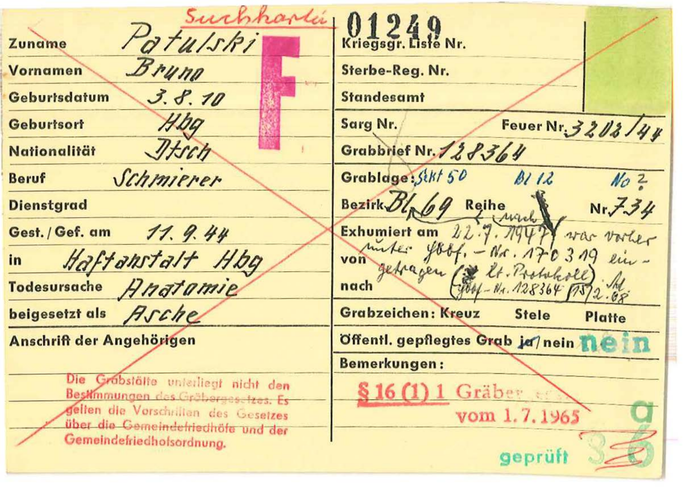 Suchkarte
Zuname Patulski
Vornamen Bruno
Geburtsdatum 3.8.10
Geburtsort Hbg
Nationalität Dtsch
Beruf Schmierer
Dienstgrad
Gest./Gef. am 11.9.44
in Haftanstalt Hbg
Todesursache Anatomie
beigesetzt als Asche
Anschrift der Angehörigen
Die Grabstätte unterliegt nicht den
Bestimmungen des Gräbergesetzes. Es
gelten die Vorschriften des Gesetzes
über die Gemeindefriedhöfe und der
Gemeindefriedhofsordnung.
F
01249
Kriegsgr. Liste Nr.
Sterbe-Reg. Nr.
Standesamt
Sarg Nr. Feuer Nr. 3202/44
Grabbrief Nr. 128364
Grablage: 50 Bl 12 No ?
Bezirk Bl. 69 Reihe Nr. 734
nach
Exhumiert am 22.7.1947 war vorher
von unter Gbbf.-Nr. 170319 ein-
getragen (lt. Protokoll)
nach Gbbf.-Nr. 128364 2.68
Grabzeichen: Kreuz Stele Platte
Öffentl. gepflegtes Grab ja/nein nein
Bemerkungen:
§ 16 (1) 1 Gräber
vom 1.7.1965
a
geprüft 6